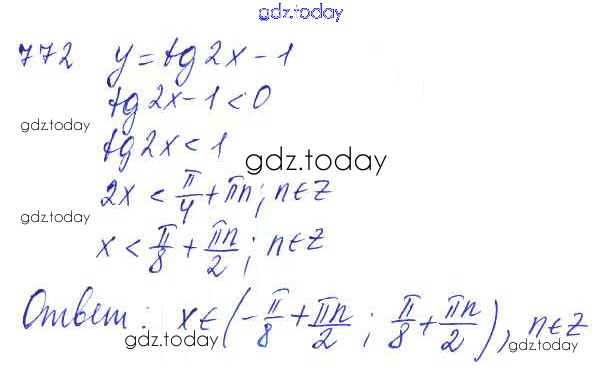 gdz.today
772 y = tg2x - 1
tg2x - 1 < 0
gdz.today
tg2x < 1
gdz.today
2x < π/4 + πn; n∈Z
gdz.today
x < π/8 + πn/2; n∈Z
Ответ: x∈(-π/8 + πn/2; π/8 + πn/2), n∈Z
gdz.today
gdz.today
gdz.today